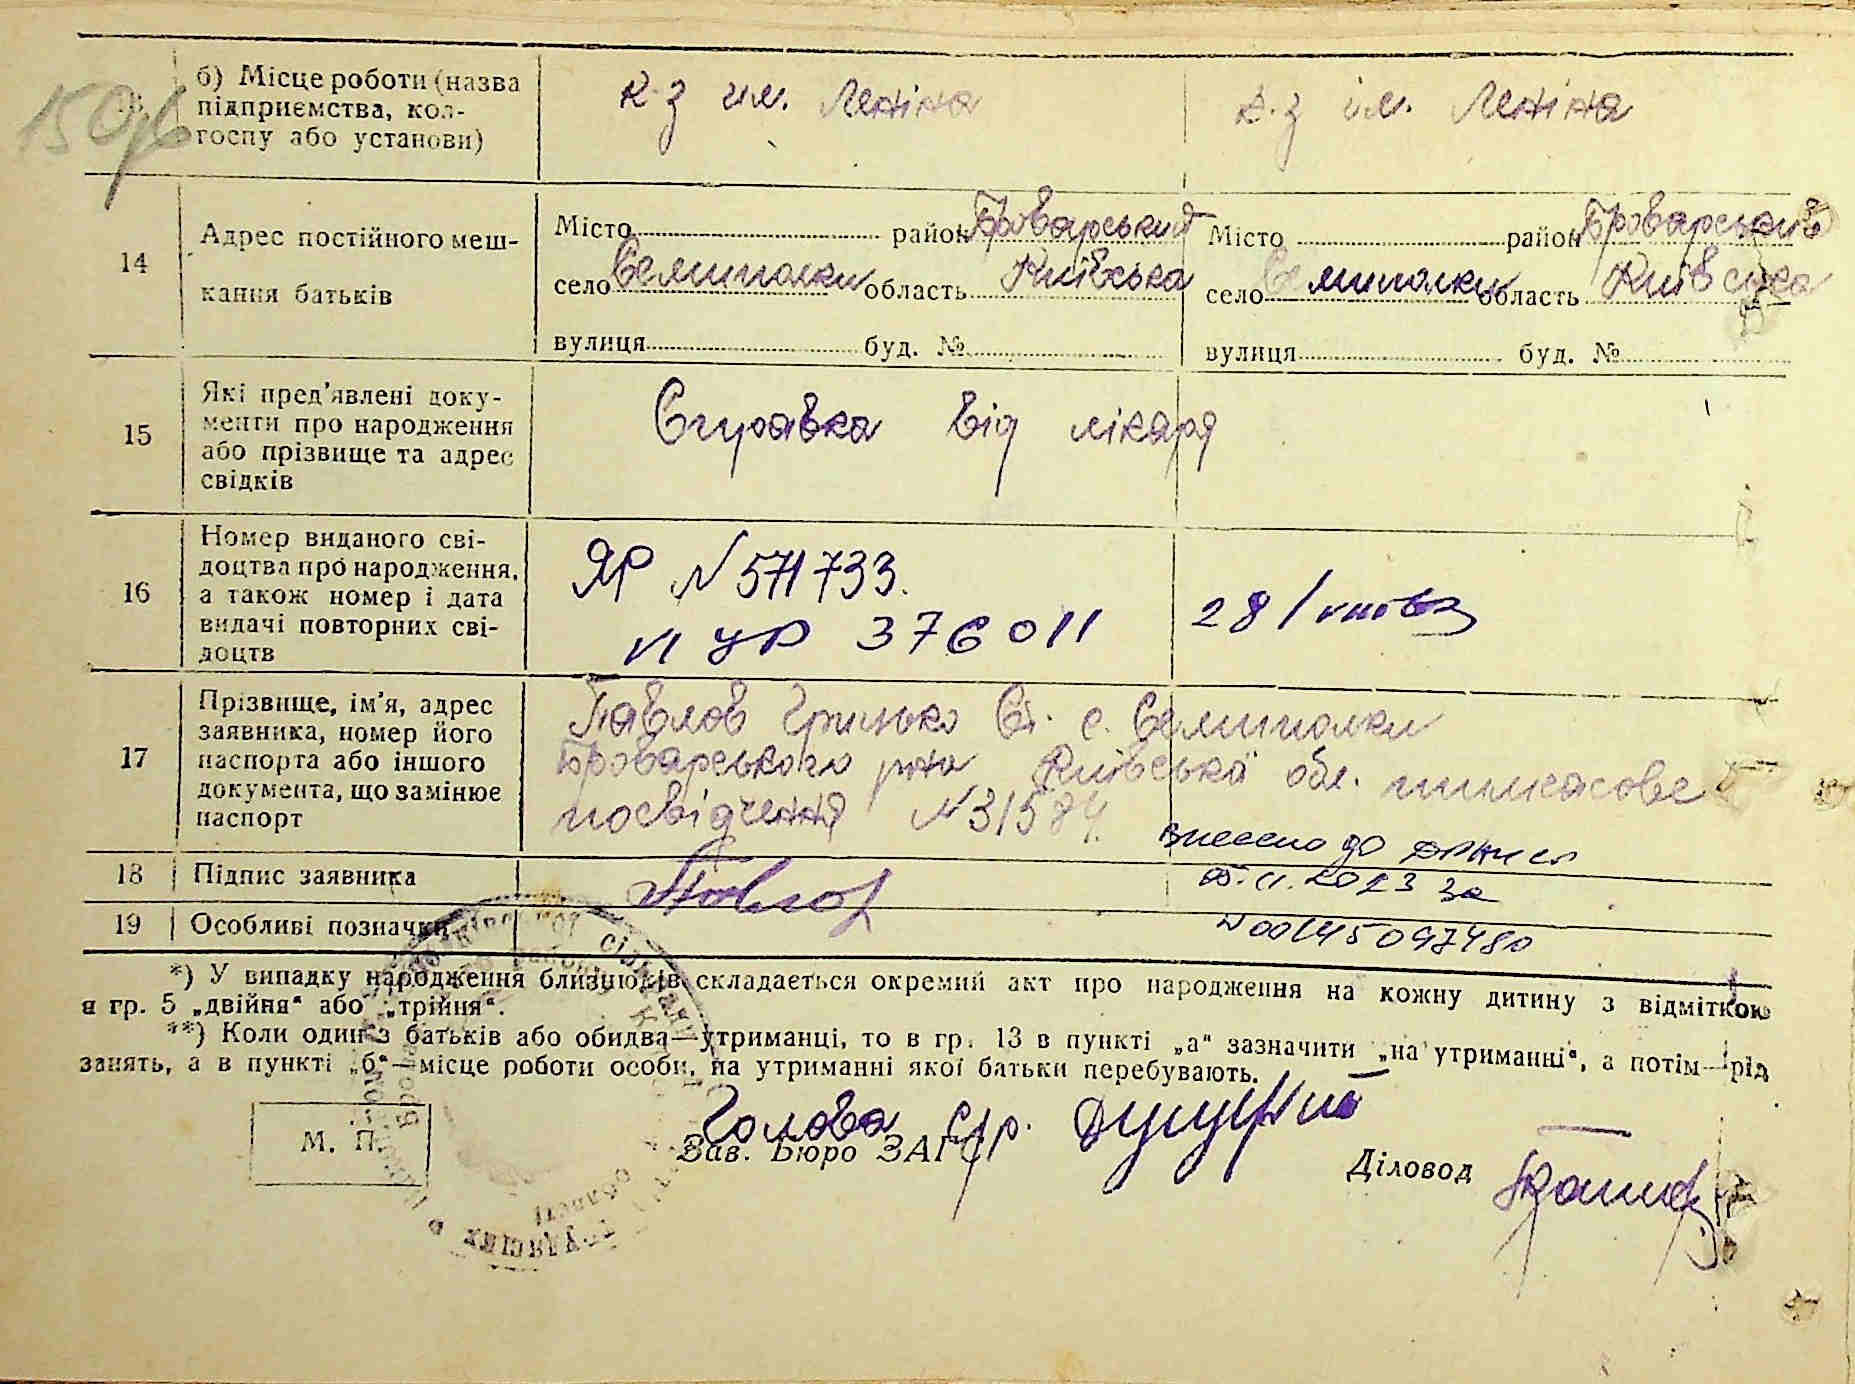 150зв
13
б) Місце роботи (назва
підприємства, кол-
госпу або установи)
к-з им. Леніна
к-з ім. Леніна
14
Адрес постійного меш-
кання батьків
Місто район Броварський
село Семиполки область Київська
вулиця буд. №
Місто район Броварський
село Семиполки область Київська
вулиця буд. №
15
Які пред'явлені доку-
менти про народження
або прізвище та адрес
свідків
Справка від лікаря
16
Номер виданого сві-
доцтва про народження,
а також номер і дата
видачі повторних сві-
доцтв
ЯР N 571733.
376011
28/
17
Прізвище, ім'я, адрес
заявника, номер його
паспорта або іншого
документа, що замінює
паспорт
Павлов Грицько Ст. с. Семиполки
Броварського р-на Київська обл. тимчасове
посвідчення N 31584.
Внесено до ДРАЦСГ
2023 за
N 00145097480
18
Підпис заявника
Павлов
19
Особливі позначки
*) У випадку народження близнюків складається окремий акт про народження на кожну дитину з відміткою
в гр. 5 „двійня“ або „трійня“.
**) Коли один з батьків або обидва—утриманці, то в гр. 13 в пункті „а“ зазначити „на утриманні“, а потім—рід
занять, а в пункті „б“—місце роботи особи, на утриманні якої батьки перебувають.
М. П.
Голова с/р.
Зав. Бюро ЗАГС
Діловод